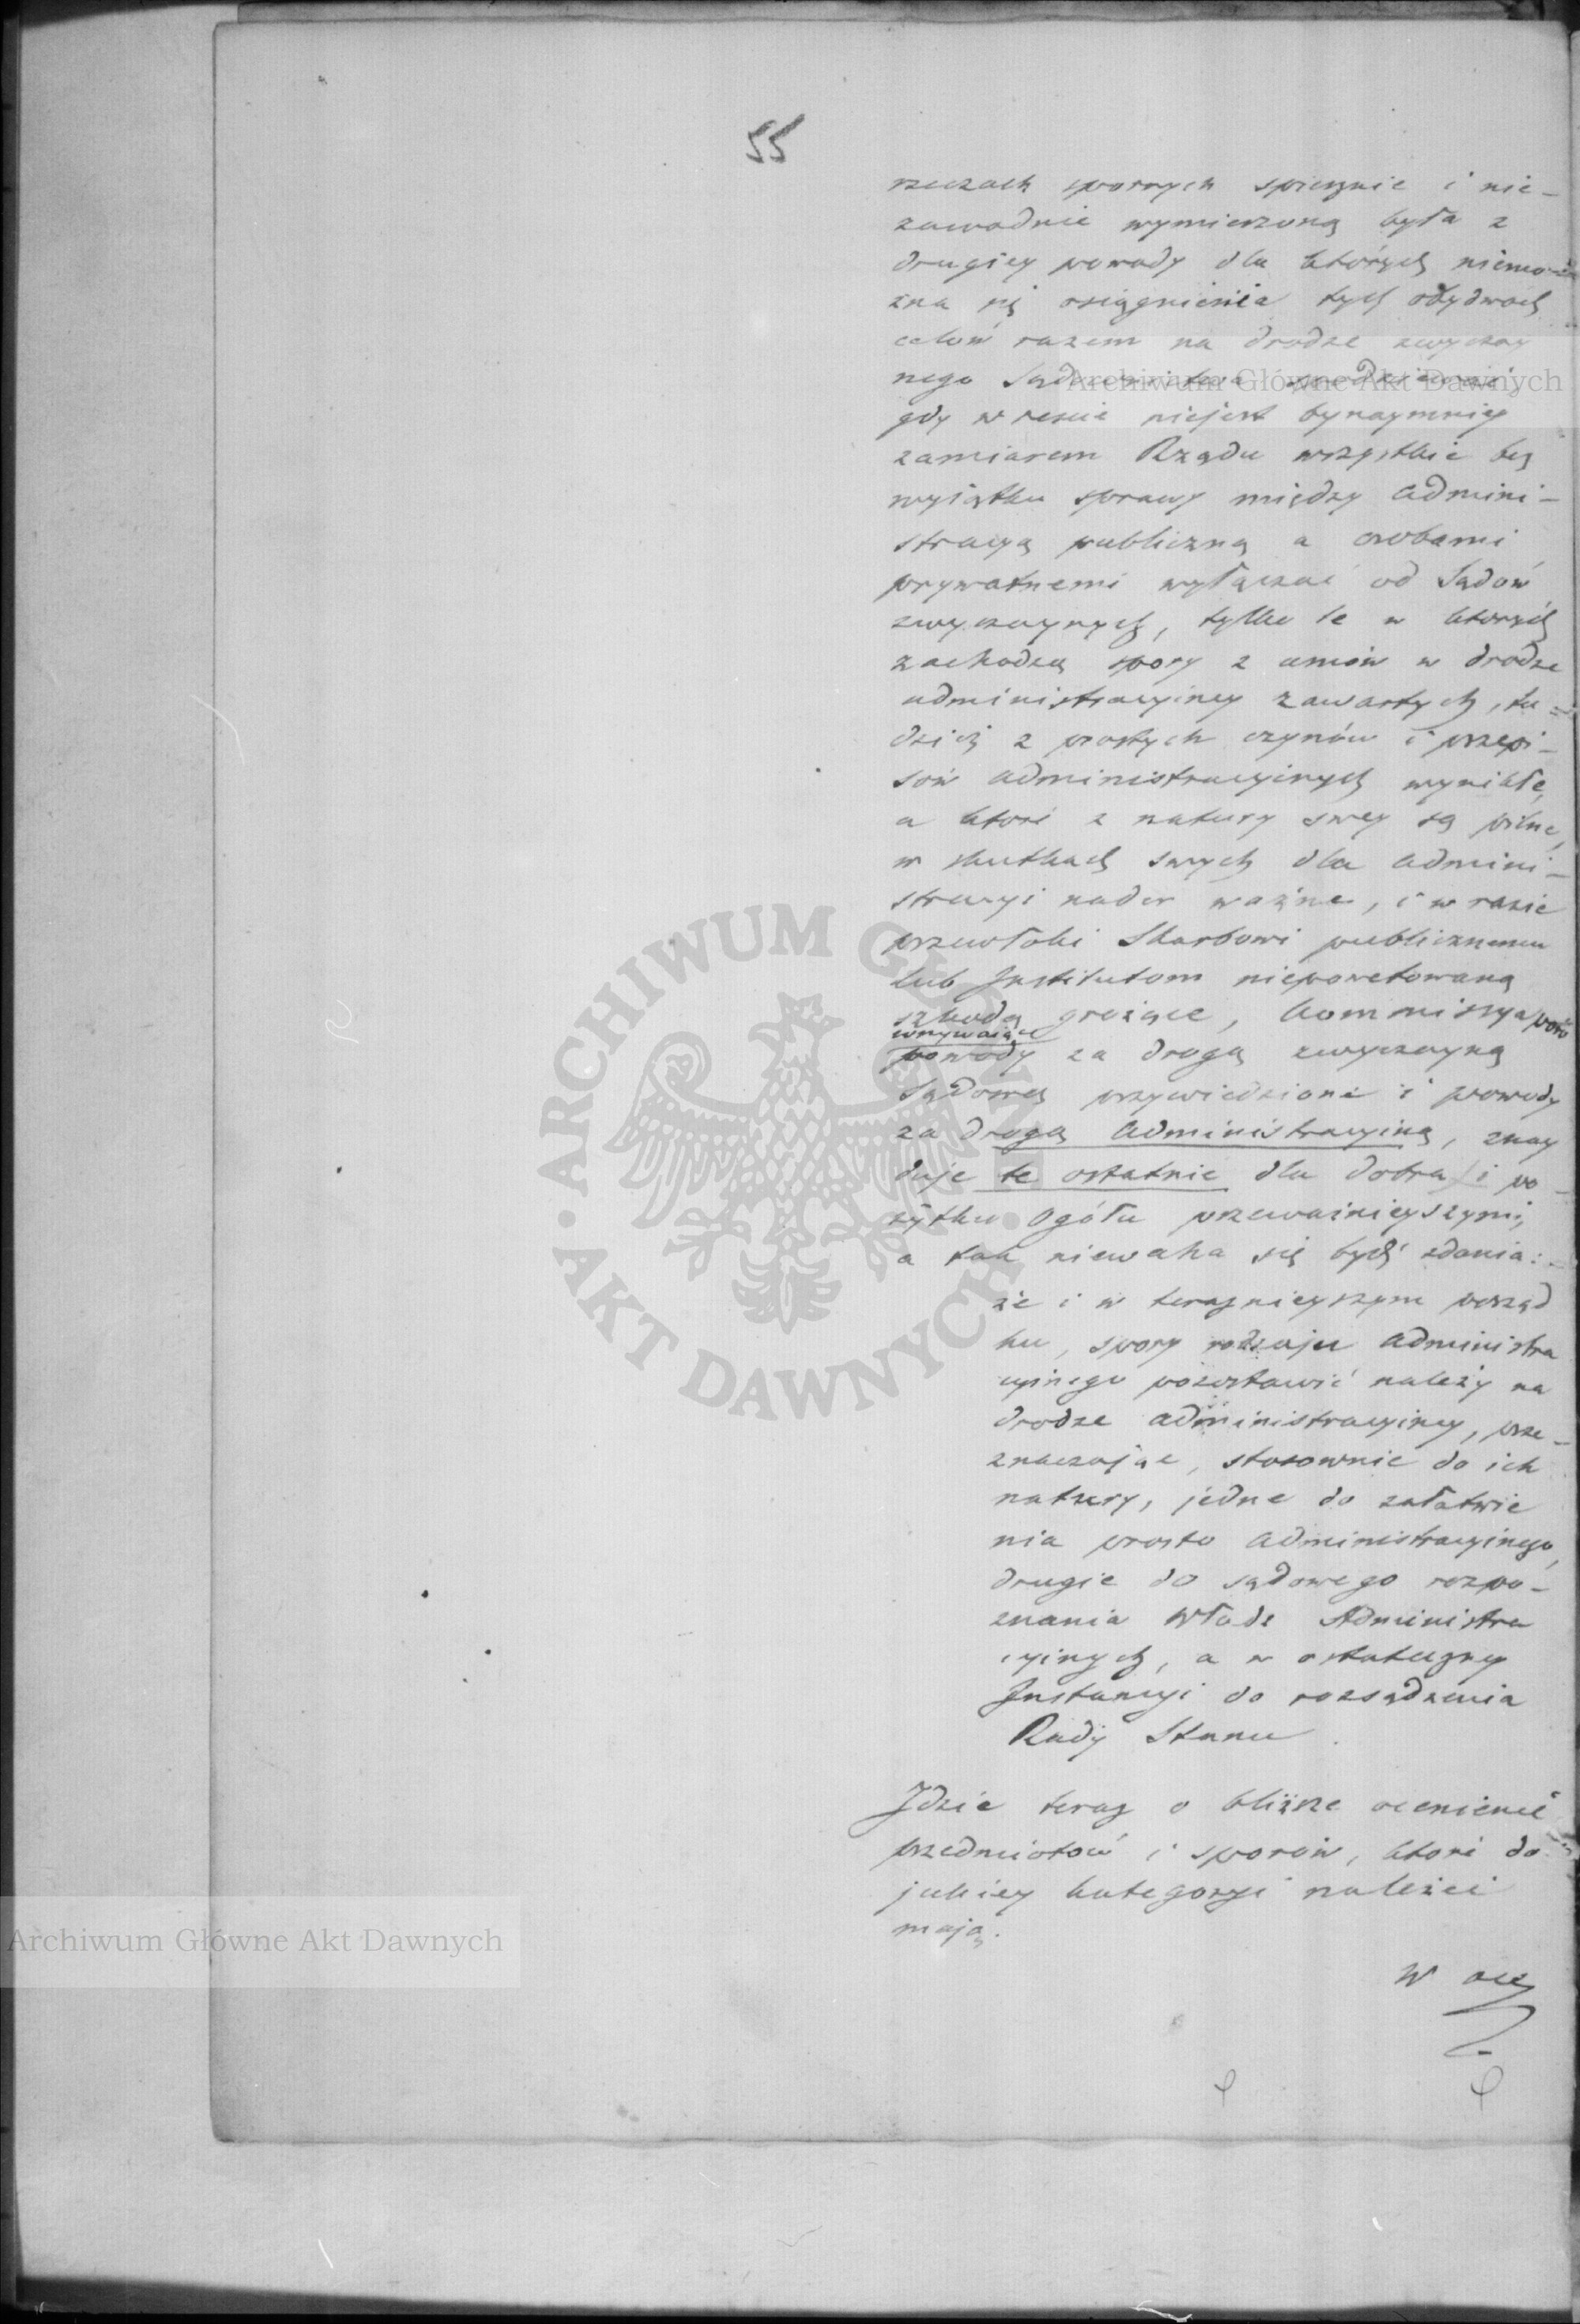 55
rzeczach spornych spiesznie i nie-
zawodnie wymierzoną była z
drugiey powody dla których niemo-
żna się osiągnienia tych obydwóch
celów razem na drodze zwyczay
nego Sądownictwa spodziewać,
gdy wreszcie niejest bynaymniey
zamiarem Rządu wszystkie bez
wyiątku sprawy między admini-
stracyą publiczną a osobami
prywatnemi wyłączać od Sądów
zwyczaynych, tylko te w których
zachodzą spory z umów w drodze
administracyiney zawartych, tu=
dzież z prostych czynów i przepi-
sów administracyinych wynikłe,
a które z natury swey są pilne,
w skutkach swych dla admini-
stracyi nader ważne, i w razie
przewłoki Skarbowi publicznemu
lub Institutom niepowetowaną
szkodą grożące, Kommissya poró
wnywaiąc
powody za drogą zwyczayną
Sądową przywiedzione i powody
za drogą administracyiną, znay
duje te ostatnie dla dobra i po-
żytku Ogółu przeważnieyszymi,
a tak niewaha się bydź zdania:-
że i w teraznieyszym porząd
ku, spory rodzaju administra
cyinego pozostawić należy na
drodze administracyiney, prze-
znaczając, stosownie do ich
natury, jedne do załatwie
nia prosto administracyinego,
drugie do sądowego rozpo-
znania Władz Administra
cyinych, a w ostateczney
Instancyi do rozsądzenia
Rady Stanu.
Idzie teraz o bliższe ocenienie
przedmiotów i sporów, które do
jakiey kategoryi należeć
mają.
W oce
Archiwum Główne Akt Dawnych
Archiwum Główne Akt Dawnych
ARCHIWUM GŁÓWNE
AKT DAWNYCH